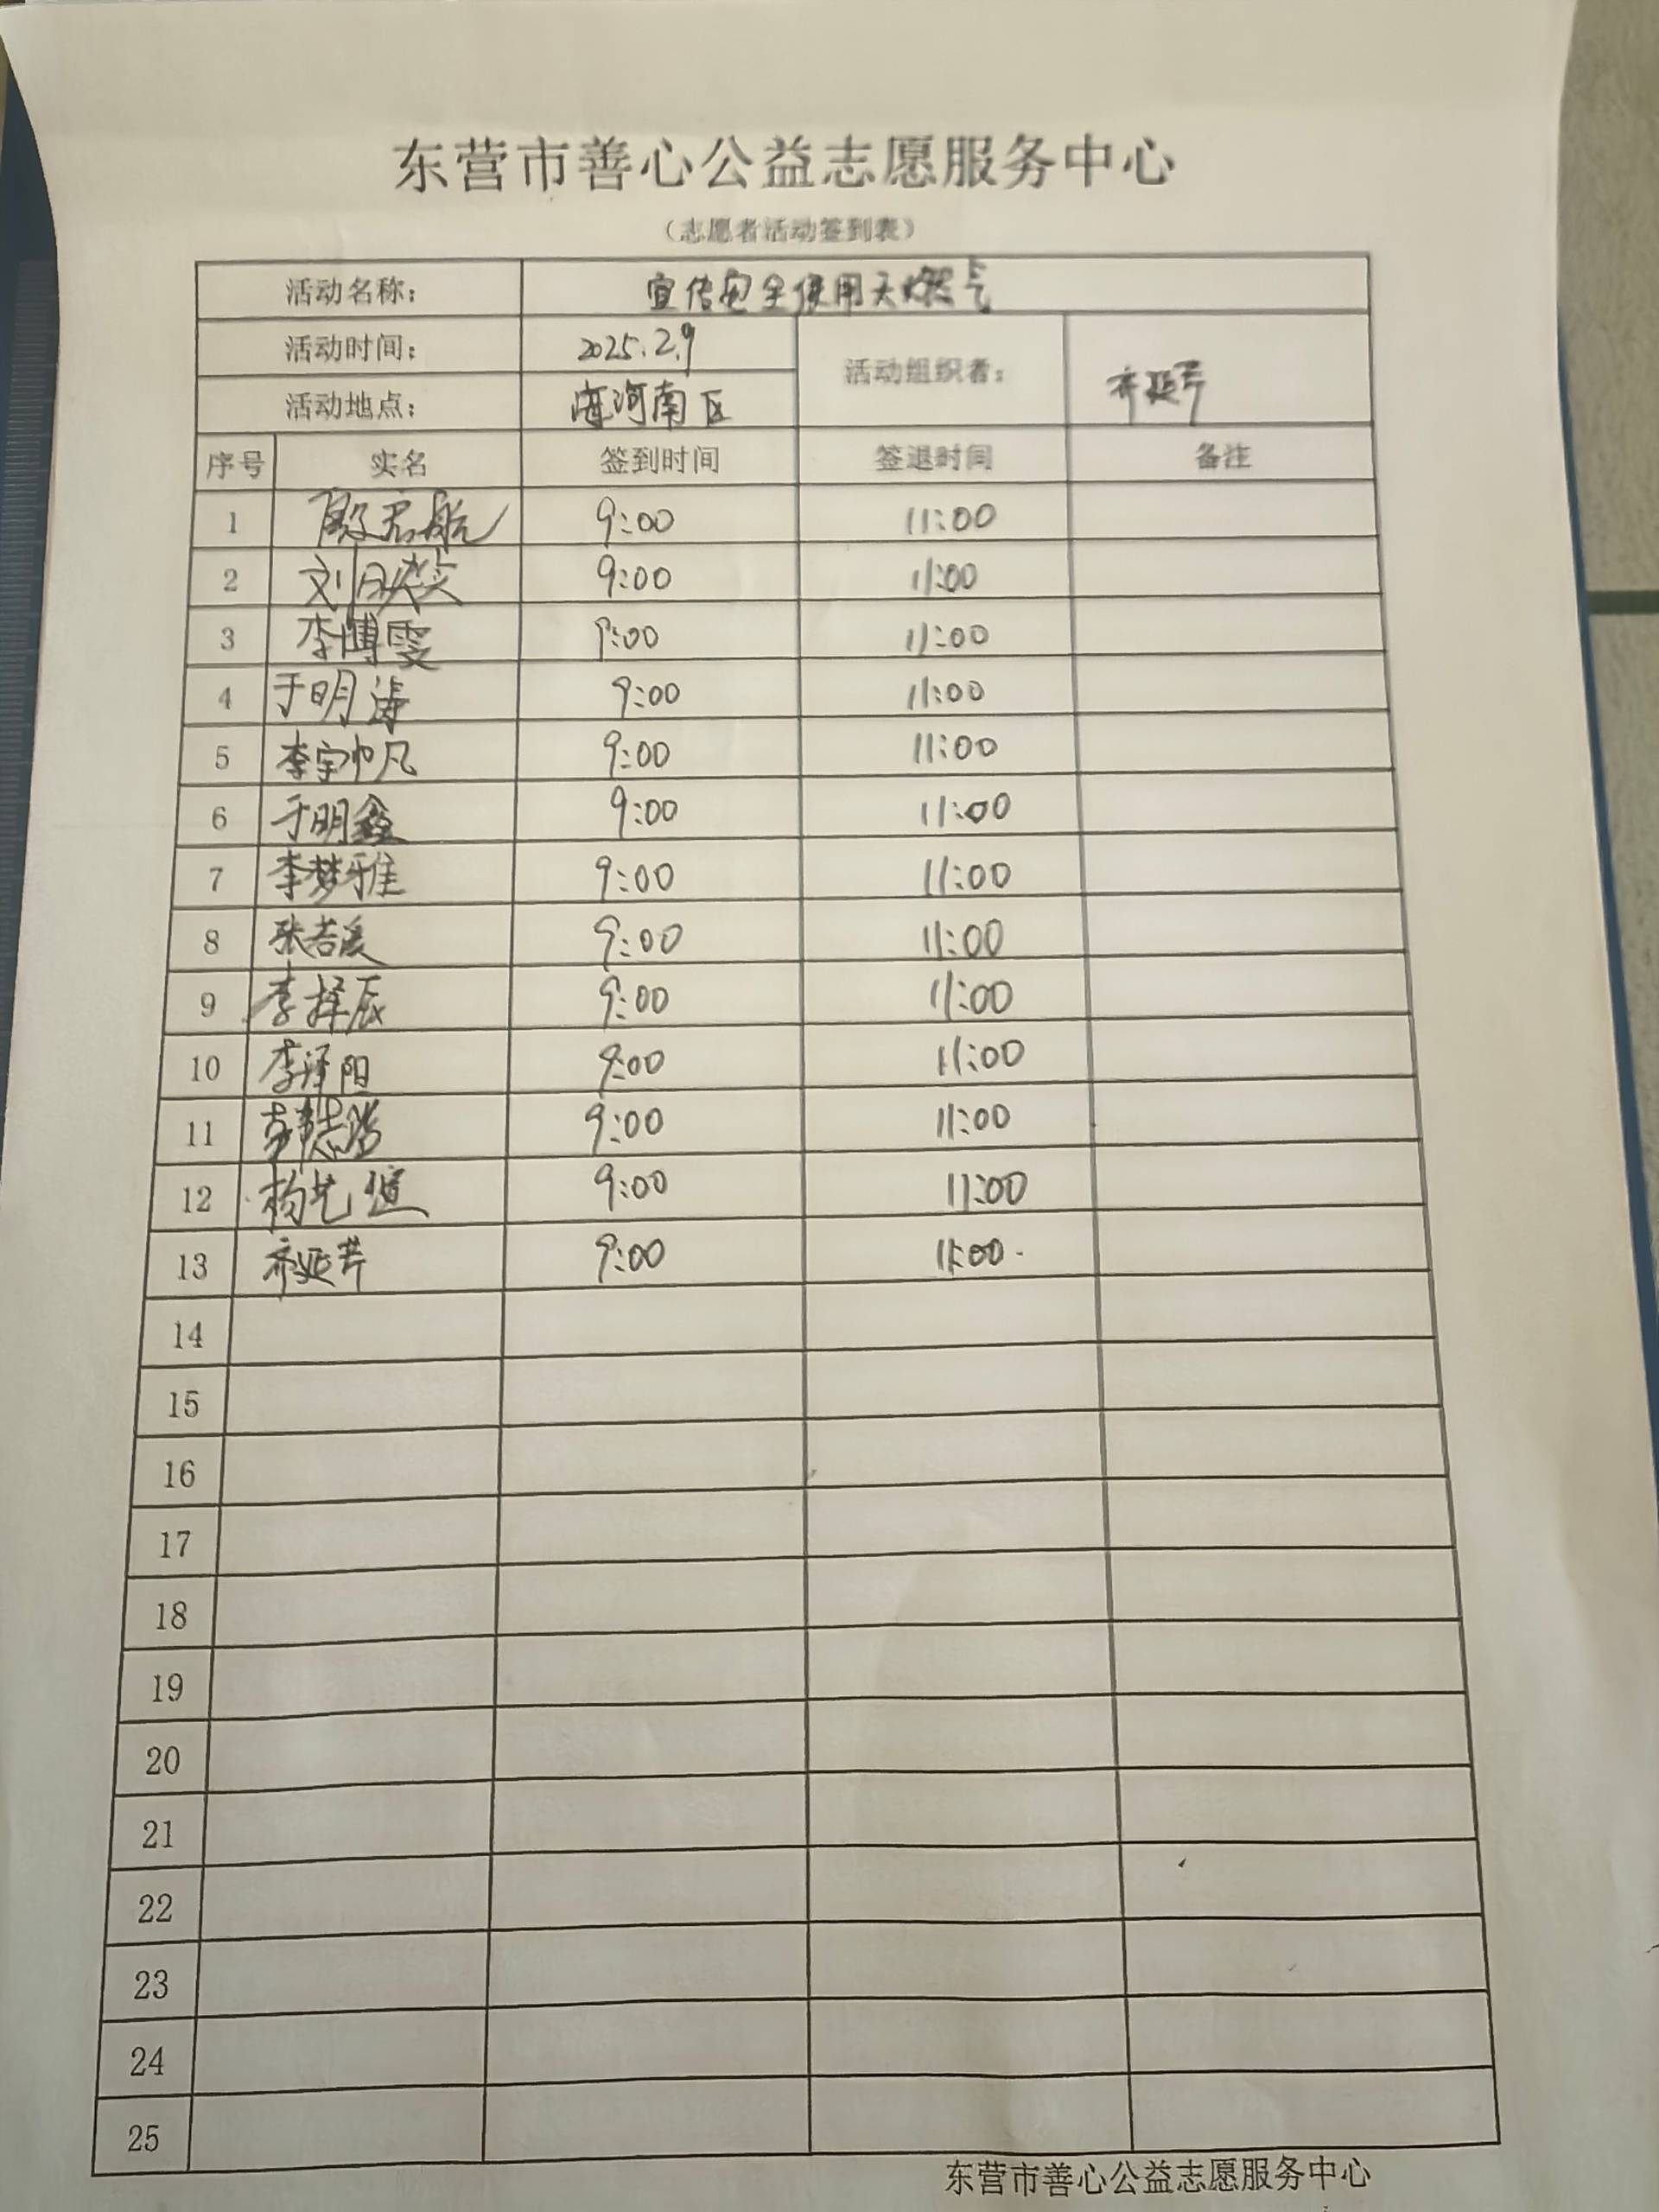 东营市善心公益志愿服务中心
（志愿者活动签到表）
活动名称： 宣传安全使用天燃气
活动时间： 2025.2.9 活动组织者： 齐延芹
活动地点： 海河南区
序号 实名 签到时间 签退时间 备注
1 殷君航 9:00 11:00
2 刘 9:00 11:00
3 李博雯 9:00 11:00
4 于明涛 9:00 11:00
5 李宇帆 9:00 11:00
6 于明鑫 9:00 11:00
7 李梦雅 9:00 11:00
8 张若溪 9:00 11:00
9 李择辰 9:00 11:00
10 李泽阳 9:00 11:00
11 9:00 11:00
12 杨艺 9:00 11:00
13 齐延芹 9:00 11:00
14
15
16
17
18
19
20
21
22
23
24
25
东营市善心公益志愿服务中心